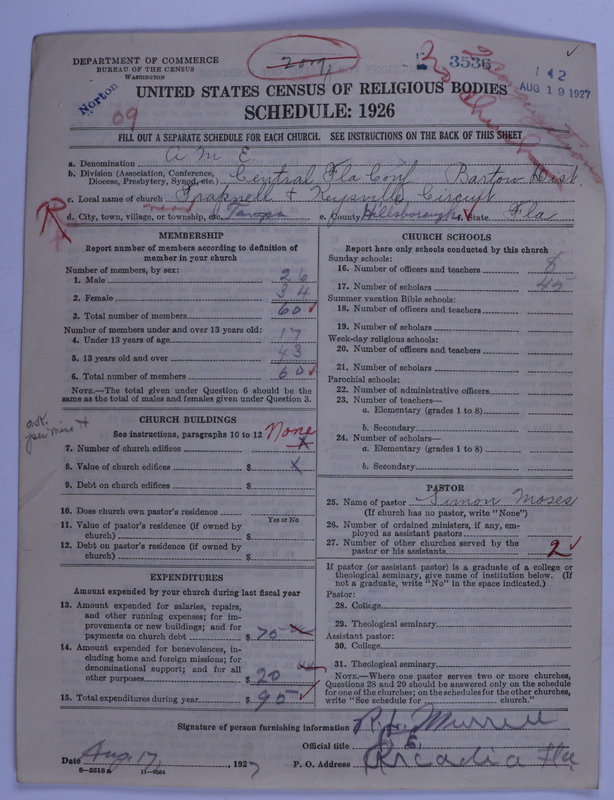 DEPARTMENT OF COMMERCE
BUREAU OF THE CENSUS
WASHINGTON
3536
142
AUG 19 1927
Norton
09
UNITED STATES CENSUS OF RELIGIOUS BODIES
SCHEDULE: 1926
FILL OUT A SEPARATE SCHEDULE FOR EACH CHURCH. SEE INSTRUCTIONS ON THE BACK OF THIS SHEET
a. Denomination A M E
b. Division (Association, Conference, Diocese, Presbytery, Synod, etc.) Central Fla Conf Bartow Dist.
c. Local name of church Trapnell & Keysville Circuit
d. City, town, village, or township, etc. Tampa e. County Hillsborough f. State Fla
MEMBERSHIP
Report number of members according to definition of
member in your church
Number of members, by sex:
1. Male 26
2. Female 34
3. Total number of members 60
Number of members under and over 13 years old:
4. Under 13 years of age 17
5. 13 years old and over 43
6. Total number of members 60
NOTE.—The total given under Question 6 should be the
same as the total of males and females given under Question 3.
CHURCH BUILDINGS
See instructions, paragraphs 10 to 12 None
7. Number of church edifices x
8. Value of church edifices $ x
9. Debt on church edifices $
10. Does church own pastor's residence
Yes or No
11. Value of pastor's residence (if owned by
church) $
12. Debt on pastor's residence (if owned by
church) $
EXPENDITURES
Amount expended by your church during last fiscal year
13. Amount expended for salaries, repairs,
and other running expenses; for im-
provements or new buildings; and for
payments on church debt $ 75
14. Amount expended for benevolences, in-
cluding home and foreign missions; for
denominational support; and for all
other purposes $ 20
15. Total expenditures during year $ 95
CHURCH SCHOOLS
Report here only schools conducted by this church
Sunday schools:
16. Number of officers and teachers 8
17. Number of scholars 45
Summer vacation Bible schools:
18. Number of officers and teachers
19. Number of scholars
Week-day religious schools:
20. Number of officers and teachers
21. Number of scholars
Parochial schools:
22. Number of administrative officers
23. Number of teachers—
a. Elementary (grades 1 to 8)
b. Secondary
24. Number of scholars—
a. Elementary (grades 1 to 8)
b. Secondary
PASTOR
25. Name of pastor Simon Moses
(If church has no pastor, write "None")
26. Number of ordained ministers, if any, em-
ployed as assistant pastors
27. Number of other churches served by the
pastor or his assistants 2
If pastor (or assistant pastor) is a graduate of a college or
theological seminary, give name of institution below. (If
not a graduate, write "No" in the space indicated.)
Pastor:
28. College
29. Theological seminary
Assistant pastor:
30. College
31. Theological seminary
NOTE.—Where one pastor serves two or more churches,
Questions 28 and 29 should be answered only on the schedule
for one of the churches; on the schedules for the other churches,
write "See schedule for church."
Signature of person furnishing information Murrell
Official title
Date Aug. 17, 1927 P. O. Address Arcadia Fla
8—5518a 11—9034